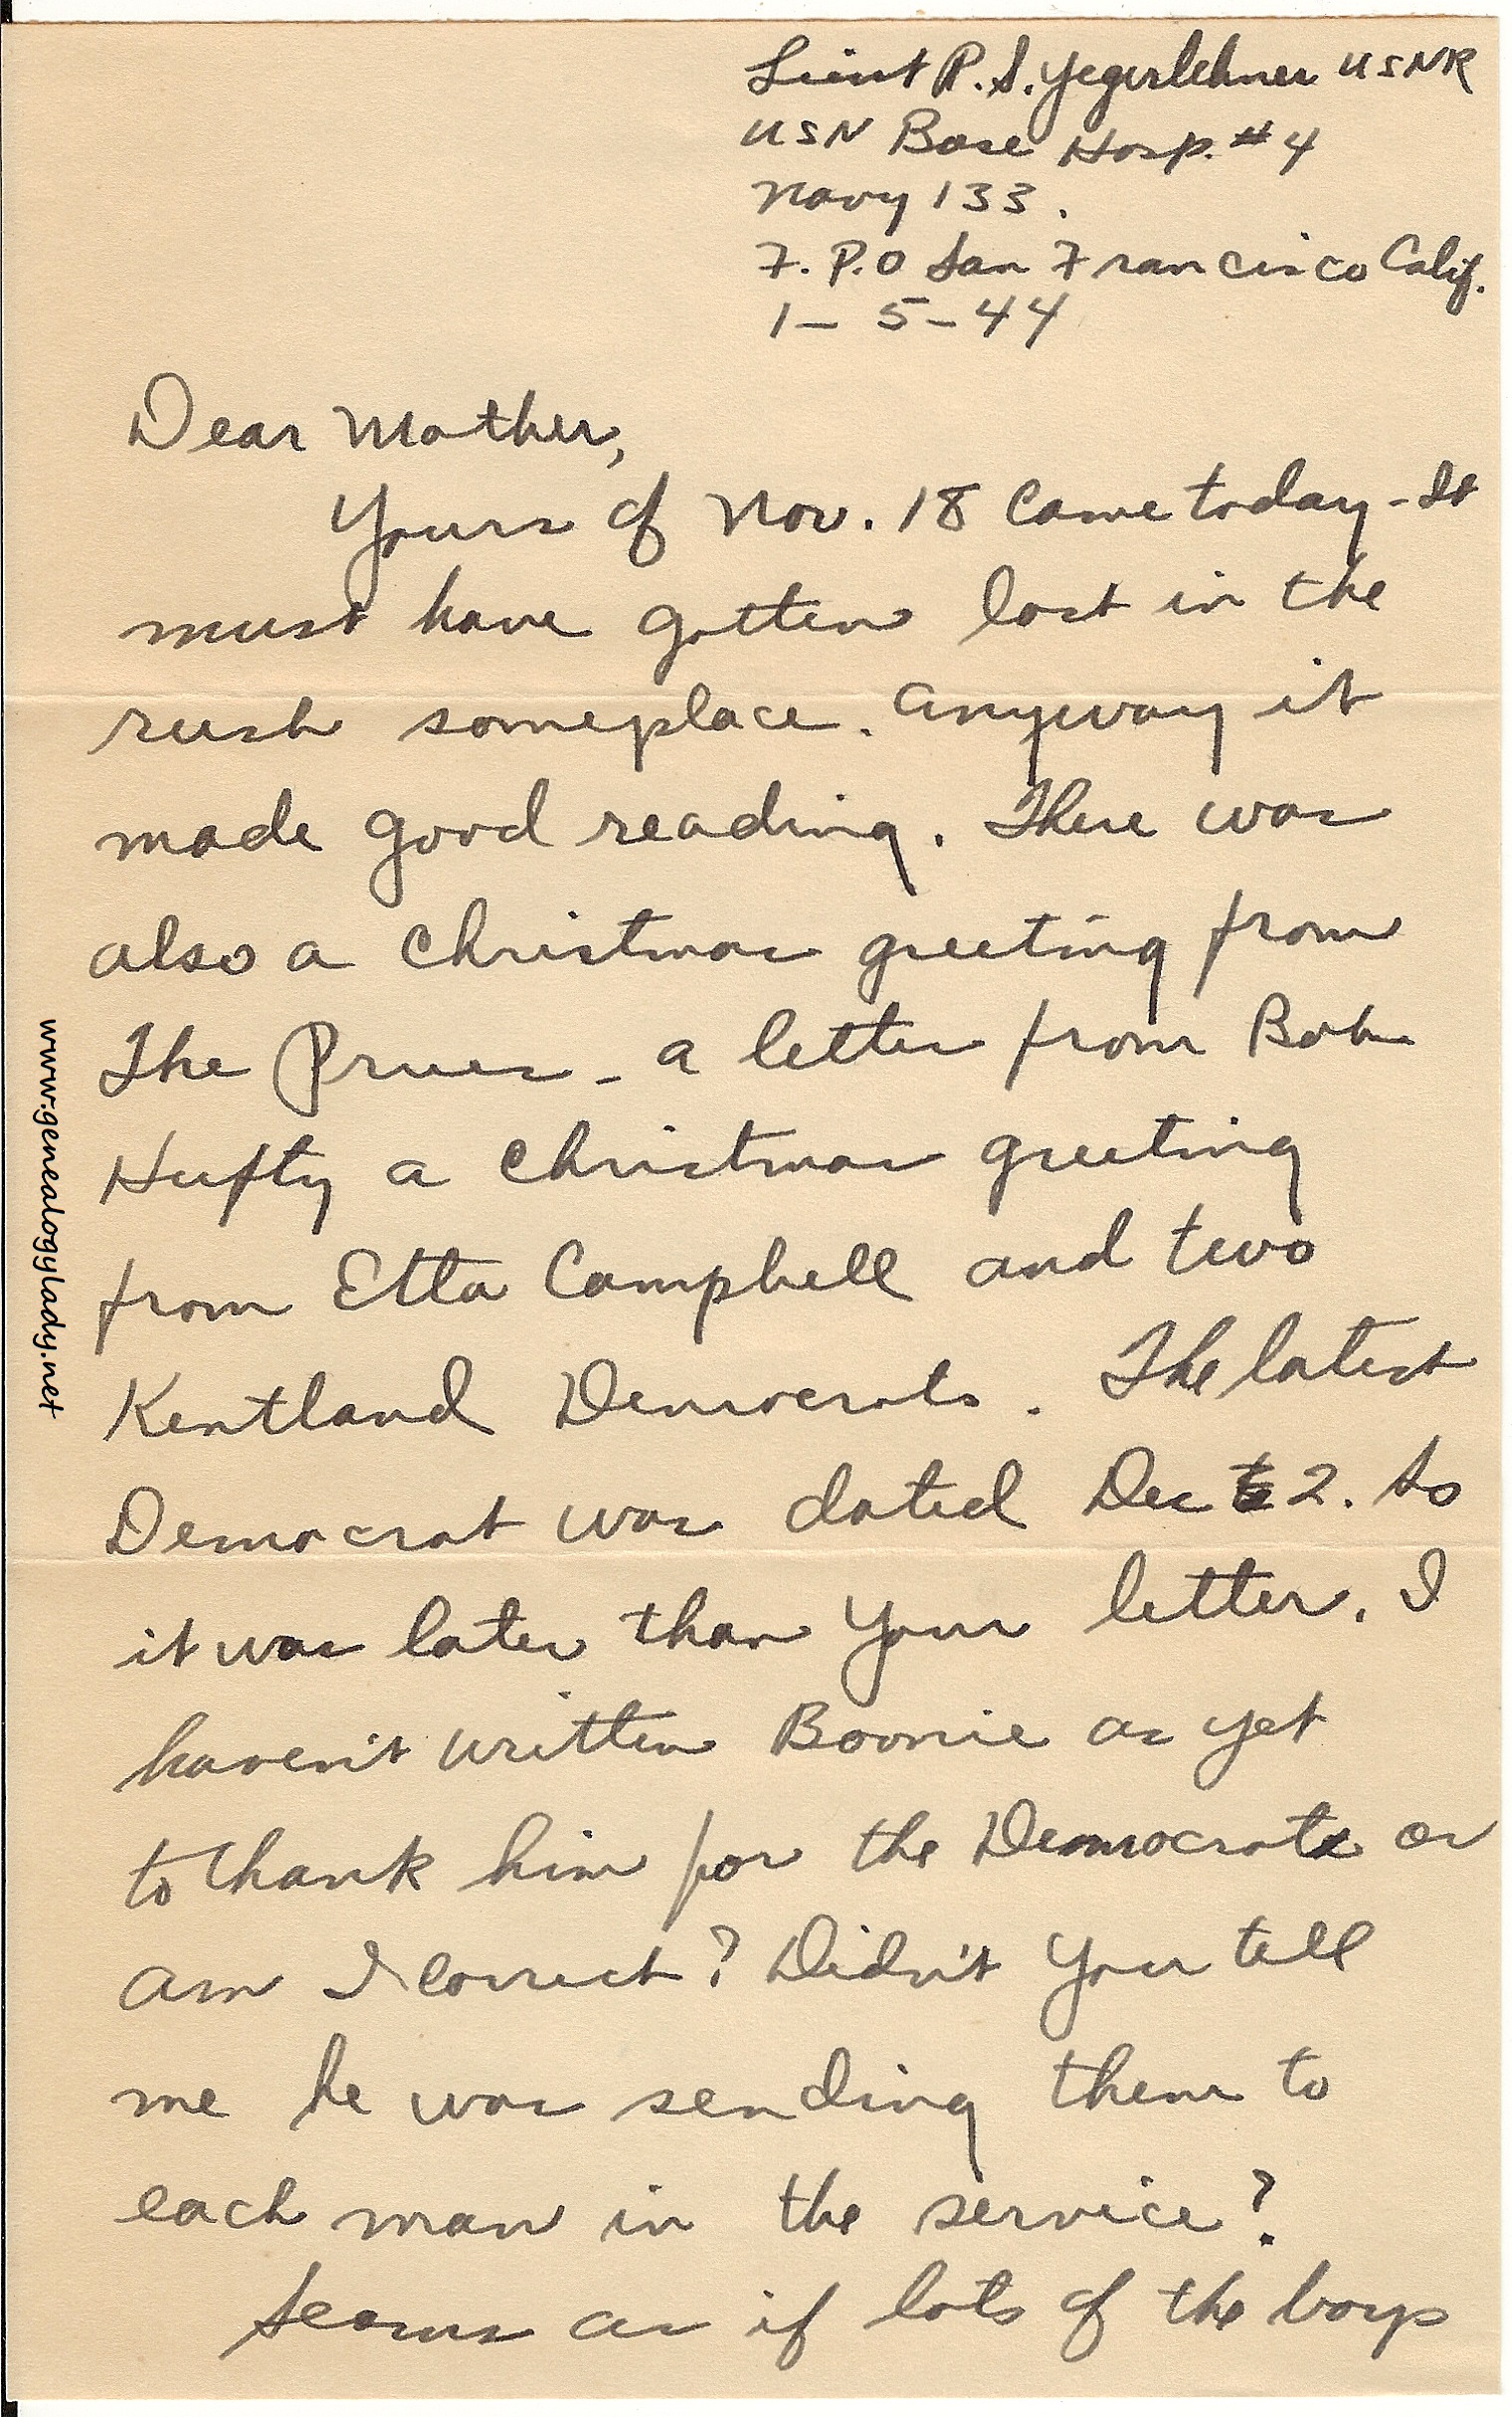 Lieut R. S. Yegerlehner USNR
USN Base Hosp. #4
Navy 133.
F. P.O San Francisco Calif.
1-5-44
Dear Mother,
Yours of Nov. 18 came today - It
must have gotten lost in the
rush someplace. Anyway it
made good reading. There was
also a Christmas greeting from
The Prues - a letter from Bob
Hufty a Christmas greeting
from Etta Campbell and two
Kentland Democrats. The latest
Democrat was dated Dec 2. So
it was later than your letter. I
haven't written Boonie as yet
to thank him for the Democrats or
am I correct? Didn't you tell
me he was sending them to
each man in the service?
Seams as if lots of the boys
www.genealogylady.net